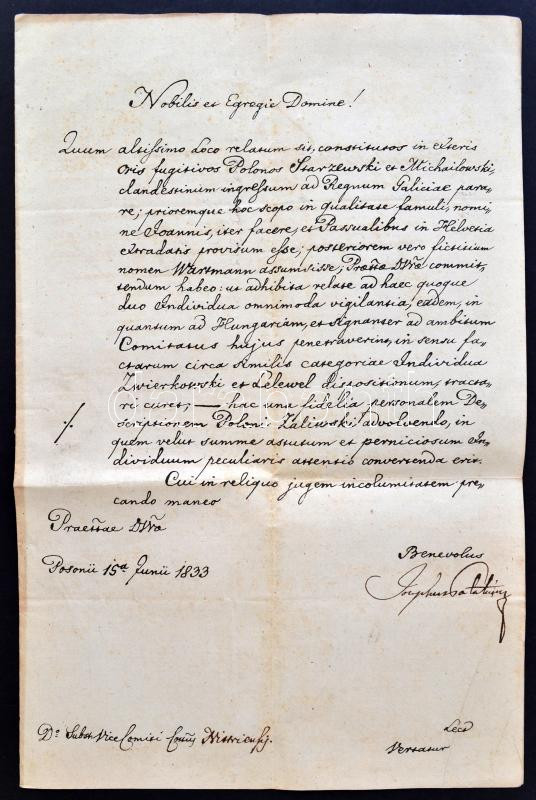 Nobilis et Egregie Domine!
Quum altissimo Loco relatum sit, constitutos in exteris
oris fugitivos Polonos Starzewski et Michailowski
clandestinum ingressum ad Regnum Galiciae para-
re; prioremque hoc scopo in qualitate famuli, nomi-
ne Joannis, iter facere, et Passualibus in Helvetia
extradatis provisum esse; posteriorem vero fictitium
nomen Wartmann assumsisse; Prættæ Dvæ commit-
tendum habeo: ut adhibita relate ad haec quoque
duo Individua omnimoda vigilantia, eadem, in
quantum ad Hungariam, et signanter ad ambitum
Comitatus hujus penetraverint, in sensu fa-
ctarum circa similis categoriae Individua
Zwierkowski et Lelewel dispositionum, tracta-
ri curet, — hac una fidelia personalem De-
scriptionem Poloni Zaliwski advolvendo, in
quem velut summe astutum et perniciosum In-
dividuum peculiaris attentio convertenda erit.
Cui in reliquo jugem incolumitatem pre-
cando maneo
Praettae Dvæ
Posonii 15a Junii 1833
Benevolus
Josephus Palatinus
Do Subst. Vice Comiti Cottus Nittriensi.
Versatur